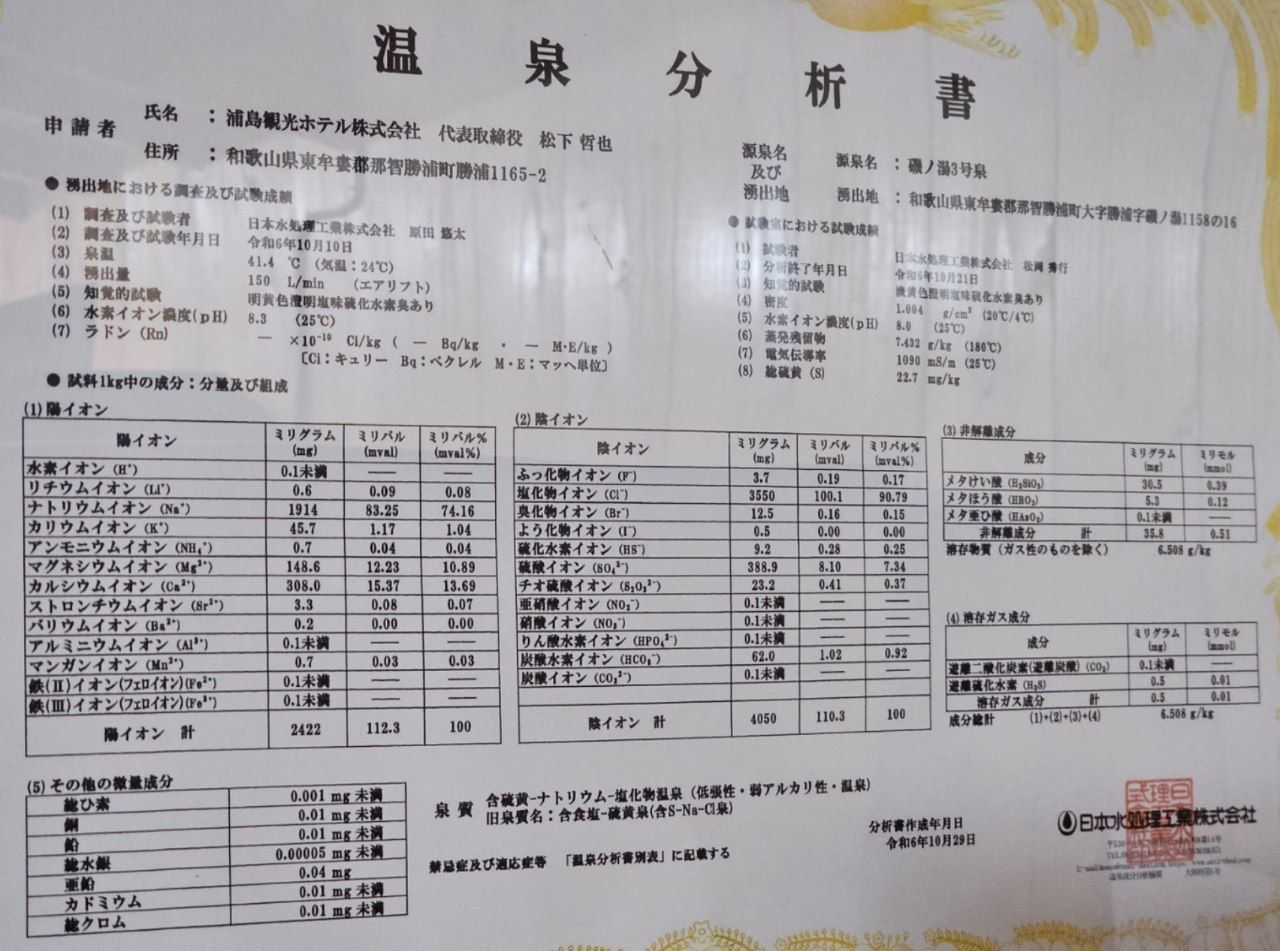 温泉分析書
申請者
氏名 ：浦島観光ホテル株式会社 代表取締役 松下 哲也
住所 ：和歌山県東牟婁郡那智勝浦町勝浦1165-2
源泉名及び湧出地
源泉名 ：磯ノ湯3号泉
湧出地 ：和歌山県東牟婁郡那智勝浦町大字勝浦字磯ノ湯1158の16
●湧出地における調査及び試験成績
(1) 調査及び試験者 日本水処理工業株式会社 原田 悠太
(2) 調査及び試験年月日 令和6年10月10日
(3) 泉温 41.4 ℃ (気温：24℃)
(4) 湧出量 150 L/min (エアリフト)
(5) 知覚的試験 明黄色澄明塩味硫化水素臭あり
(6) 水素イオン濃度(pH) 8.3 (25℃)
(7) ラドン (Rn) ― ×10⁻¹⁰ Ci/kg ( ― Bq/kg ・ ― M・E/kg )
[Ci：キュリー Bq：ベクレル M・E：マッヘ単位]
●試験室における試験成績
(1) 試験者 日本水処理工業株式会社 松岡 秀行
(2) 分析終了年月日 令和6年10月21日
(3) 知覚的試験 淡黄色澄明塩味硫化水素臭あり
(4) 密度 1.004 g/cm³ (20℃/4℃)
(5) 水素イオン濃度(pH) 8.0 (25℃)
(6) 蒸発残留物 7.432 g/kg (180℃)
(7) 電気伝導率 1090 mS/m (25℃)
(8) 総硫黄 (S) 22.7 mg/kg
●試料1kg中の成分：分量及び組成
(1) 陽イオン
陽イオン ミリグラム(mg) ミリバル(mval) ミリバル%(mval%)
水素イオン (H⁺) 0.1未満 ―― ――
リチウムイオン (Li⁺) 0.6 0.09 0.08
ナトリウムイオン (Na⁺) 1914 83.25 74.16
カリウムイオン (K⁺) 45.7 1.17 1.04
アンモニウムイオン (NH₄⁺) 0.7 0.04 0.04
マグネシウムイオン (Mg²⁺) 148.6 12.23 10.89
カルシウムイオン (Ca²⁺) 308.0 15.37 13.69
ストロンチウムイオン (Sr²⁺) 3.3 0.08 0.07
バリウムイオン (Ba²⁺) 0.2 0.00 0.00
アルミニウムイオン (Al³⁺) 0.1未満 ―― ――
マンガンイオン (Mn²⁺) 0.7 0.03 0.03
鉄(Ⅱ)イオン(フェロイオン)(Fe²⁺) 0.1未満 ―― ――
鉄(Ⅲ)イオン(フェロイオン)(Fe³⁺) 0.1未満 ―― ――
陽イオン 計 2422 112.3 100
(2) 陰イオン
陰イオン ミリグラム(mg) ミリバル(mval) ミリバル%(mval%)
ふっ化物イオン (F⁻) 3.7 0.19 0.17
塩化物イオン (Cl⁻) 3550 100.1 90.79
臭化物イオン (Br⁻) 12.5 0.16 0.15
よう化物イオン (I⁻) 0.5 0.00 0.00
硫化水素イオン (HS⁻) 9.2 0.28 0.25
硫酸イオン (SO₄²⁻) 388.9 8.10 7.34
チオ硫酸イオン (S₂O₃²⁻) 23.2 0.41 0.37
亜硝酸イオン (NO₂⁻) 0.1未満 ―― ――
硝酸イオン (NO₃⁻) 0.1未満 ―― ――
りん酸水素イオン (HPO₄²⁻) 0.1未満 ―― ――
炭酸水素イオン (HCO₃⁻) 62.0 1.02 0.92
炭酸イオン (CO₃²⁻) 0.1未満 ―― ――
陰イオン 計 4050 110.3 100
(3) 非解離成分
成分 ミリグラム(mg) ミリモル(mmol)
メタけい酸 (H₂SiO₃) 30.5 0.39
メタほう酸 (HBO₂) 5.3 0.12
メタ亜ひ酸 (HAsO₂) 0.1未満 ――
非解離成分 計 35.8 0.51
溶存物質 (ガス性のものを除く) 6.508 g/kg
(4) 溶存ガス成分
成分 ミリグラム(mg) ミリモル(mmol)
遊離二酸化炭素(遊離炭酸) (CO₂) 0.1未満 ――
遊離硫化水素 (H₂S) 0.5 0.01
溶存ガス成分 計 0.5 0.01
成分総計 (1)+(2)+(3)+(4) 6.508 g/kg
(5) その他の微量成分
総ひ素 0.001 mg 未満
銅 0.01 mg 未満
鉛 0.01 mg 未満
総水銀 0.00005 mg 未満
亜鉛 0.04 mg
カドミウム 0.01 mg 未満
総クロム 0.01 mg 未満
泉質 含硫黄-ナトリウム-塩化物温泉 (低張性・弱アルカリ性・温泉)
旧泉質名：含食塩-硫黄泉(含S-Na-Cl泉)
禁忌症及び適応症等 「温泉分析書別表」に記載する
分析書作成年月日
令和6年10月29日
日本水処理工業株式会社
温泉成分分析機関